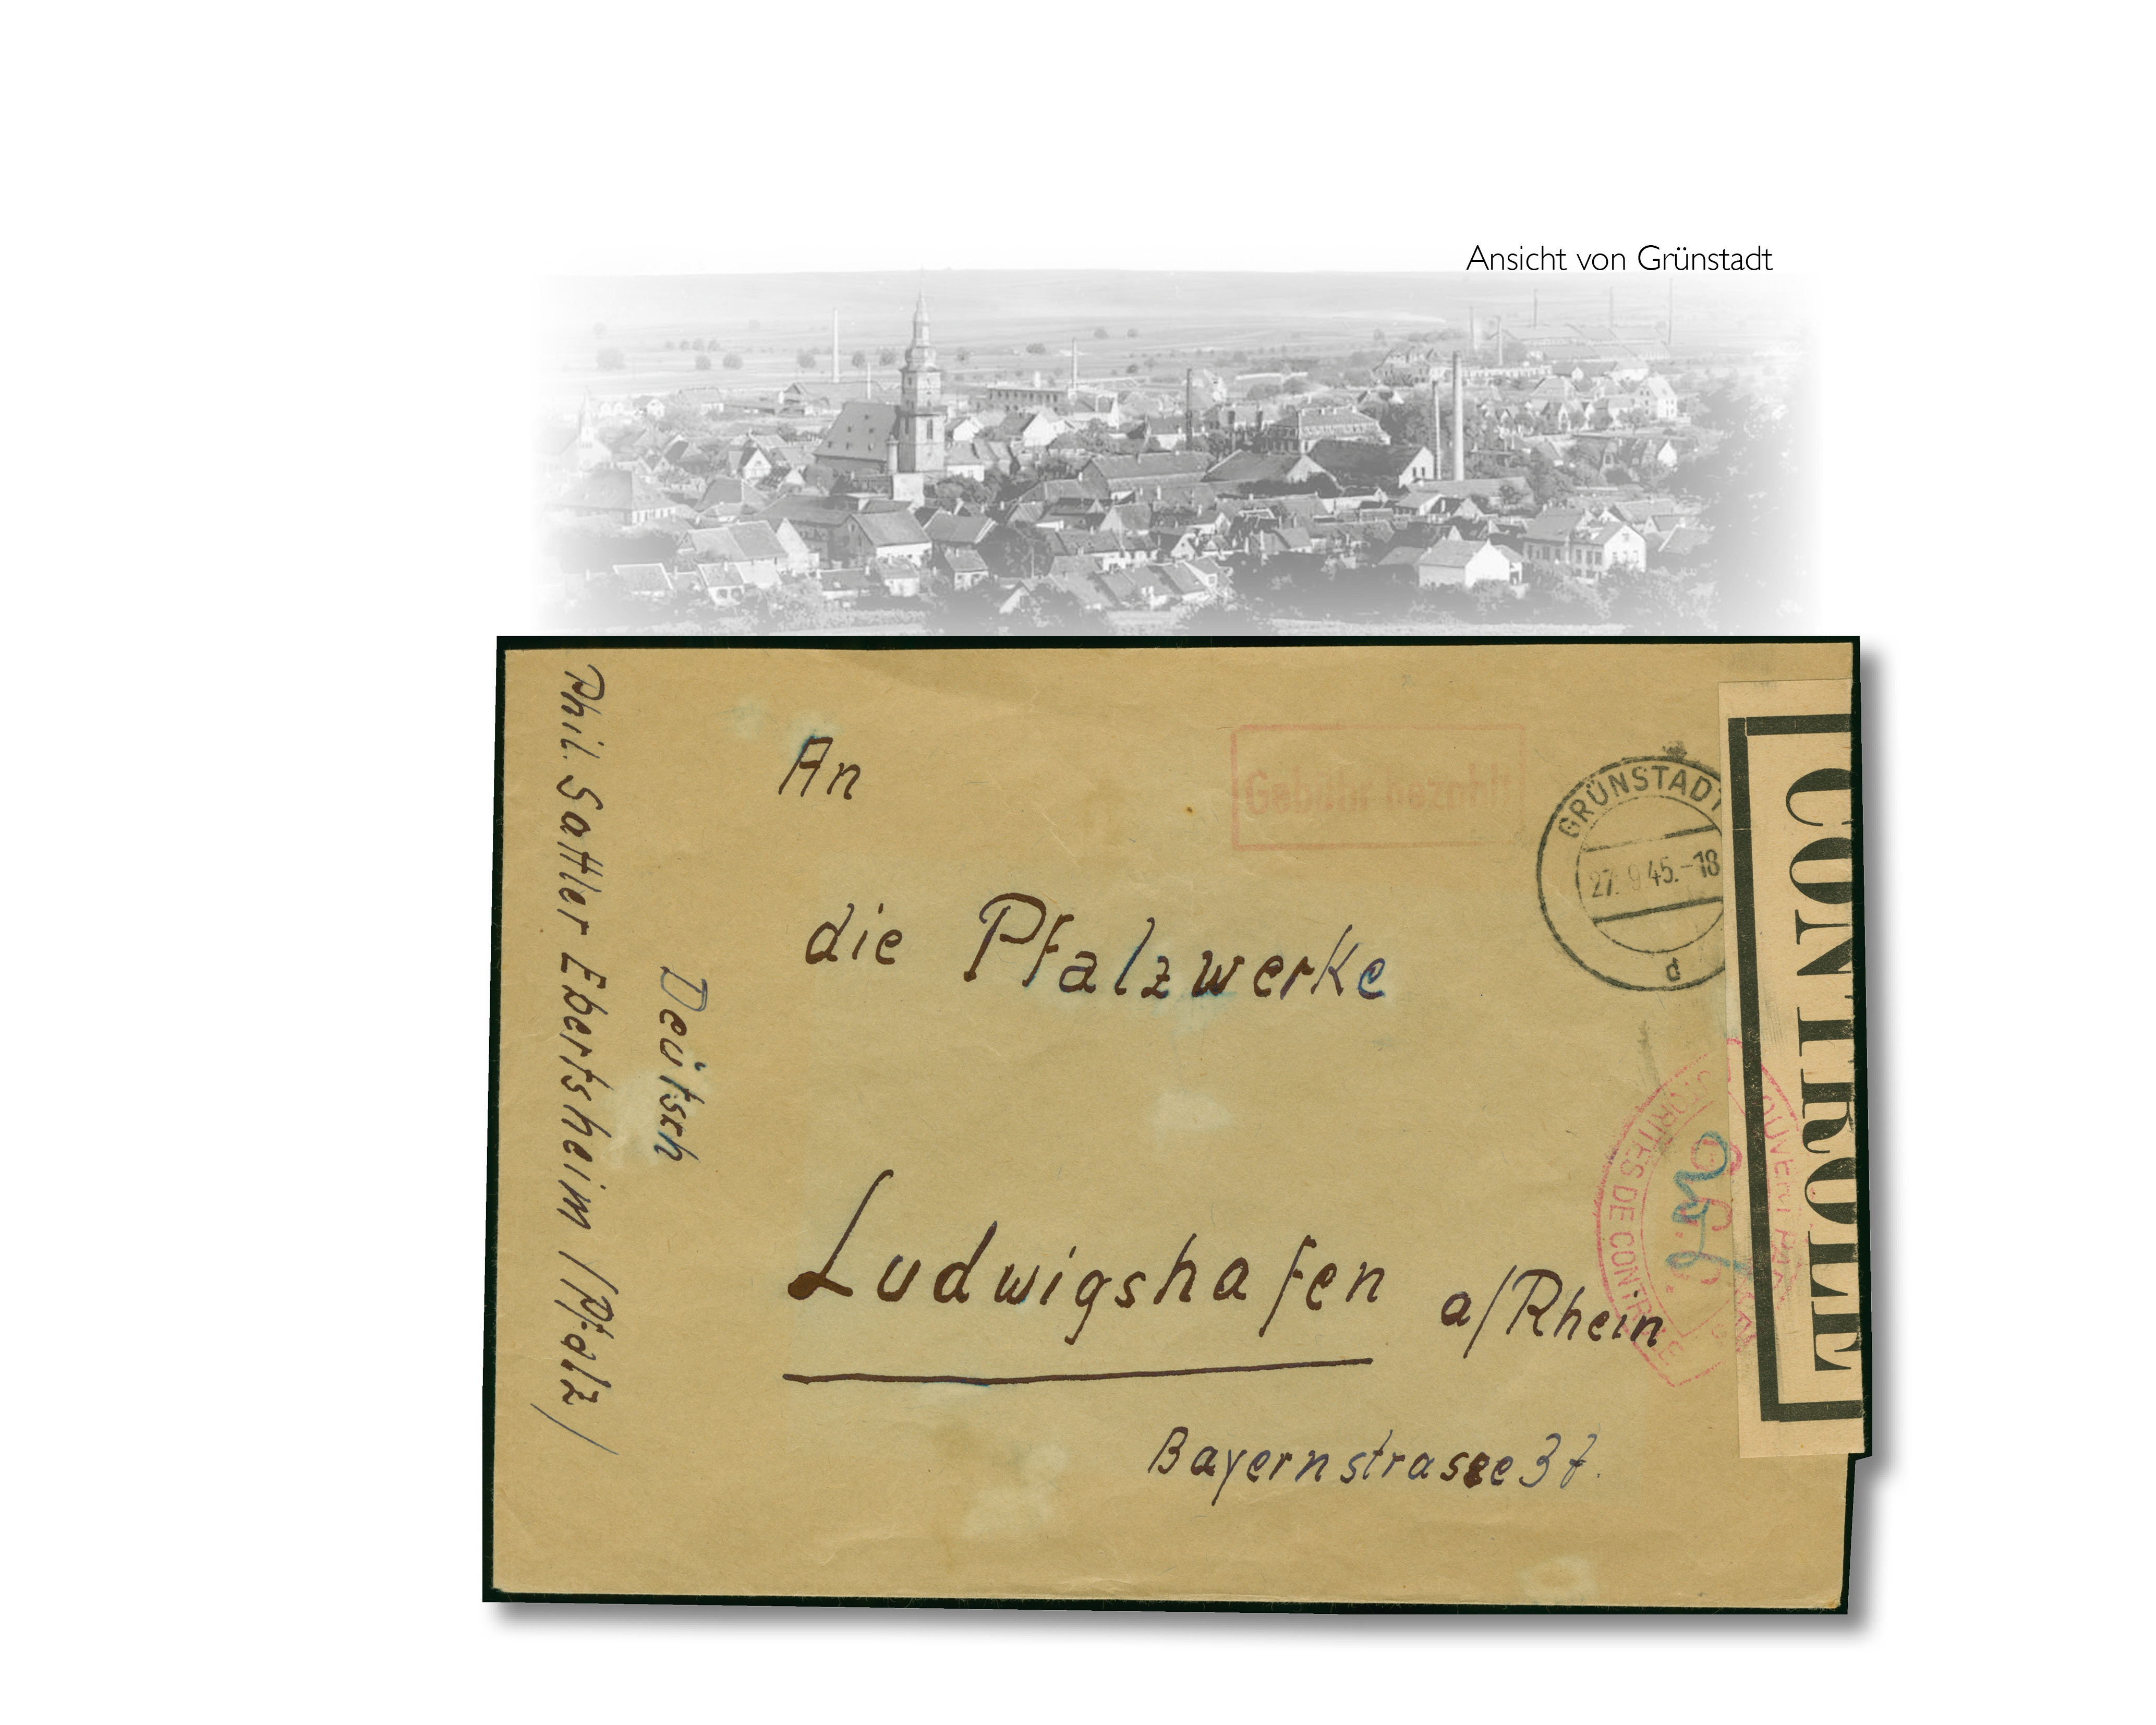 Ansicht von Grünstadt
Phil. Sattler Ebertsheim /Pfalz/
Deutsch
An
die Pfalzwerke
Ludwigshafen a/Rhein
Bayernstrasse 37.
Gebühr bezahlt
GRÜNSTADT
27. 9 45.-18
d
CONTROLE
OUVERT PAR
AUTORITES DE CONTROLE